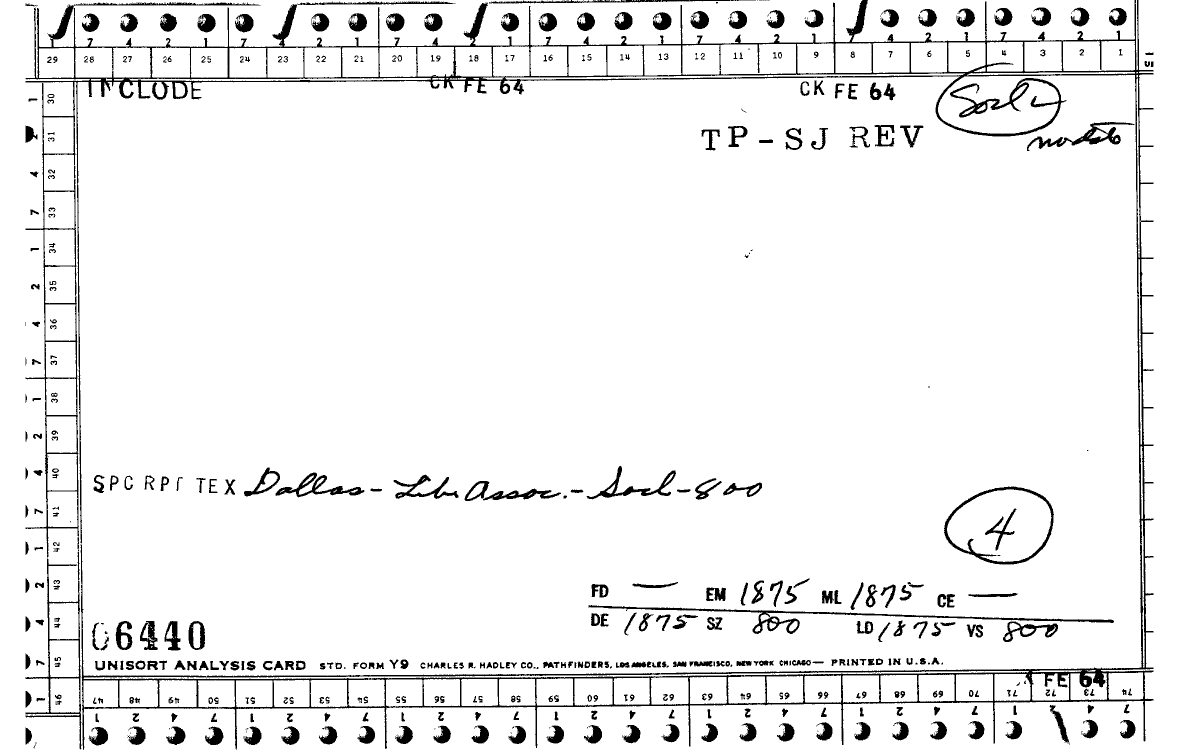 1 7 4 2 1 7 4 2 1 7 4 2 1 7 4 2 1 7 4 2 1 7 4 2 1 7 4 2 1
29 28 27 26 25 24 23 22 21 20 19 18 17 16 15 14 13 12 11 10 9 8 7 6 5 4 3 2 1
INCLODE CK FE 64 CK FE 64 Socl
TP-SJ REV no date
1 30
2 31
4 32
7 33
1 34
2 35
4 36
7 37
1 38
2 39
4 40
7 41
1 42
2 43
4 44
7 45
1 46
SPC RPT TEX Dallas - Libr Assoc. - Socl - 800
4
FD — EM 1875 ML 1875 CE —
DE 1875 SZ 800 LD 1875 VS 800
06440
UNISORT ANALYSIS CARD STD. FORM Y9 CHARLES R. HADLEY CO., PATHFINDERS, LOS ANGELES, SAN FRANCISCO, NEW YORK CHICAGO — PRINTED IN U.S.A.
FE 64
47 48 49 50 51 52 53 54 55 56 57 58 59 60 61 62 63 64 65 66 67 68 69 70 71 72 73 74
1 2 4 7 1 2 4 7 1 2 4 7 1 2 4 7 1 2 4 7 1 2 4 7 1 2 4 7